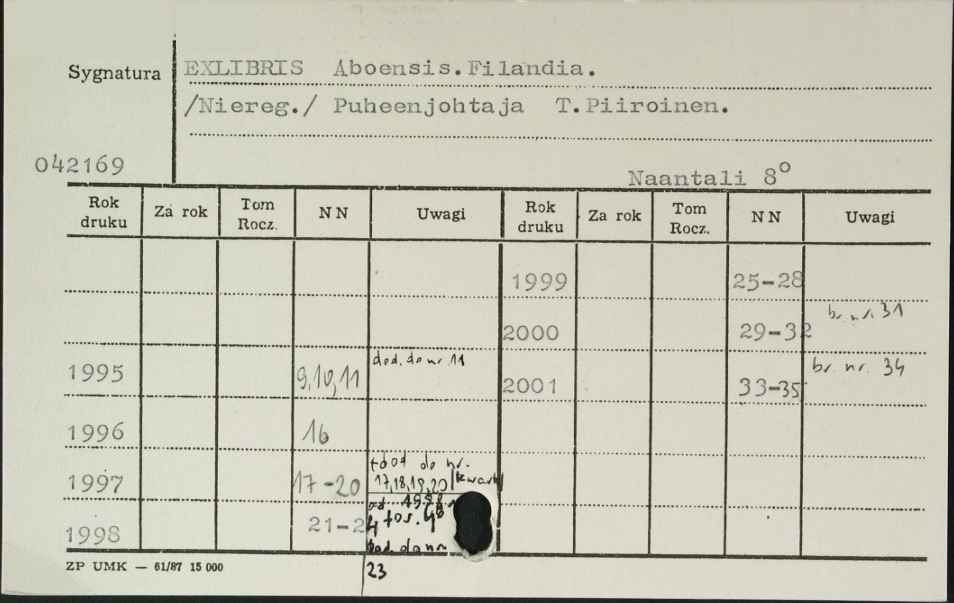 Sygnatura EXLIBRIS Aboensis.Filandia.
/Niereg./ Puheenjohtaja T.Piiroinen.
042169
Naantali 8°
Rok druku Za rok Tom Rocz. NN Uwagi Rok druku Za rok Tom Rocz. NN Uwagi
1999 25-28
2000 29-32 br. nr. 31
1995 9,10,11 dod. do nr 11 2001 33-35 br. nr. 34
1996 16
1997 17-20 +dod do nr. 17,18,19,20
1998 21-24 dod. do nr
23
ZP UMK — 61/87 15 000